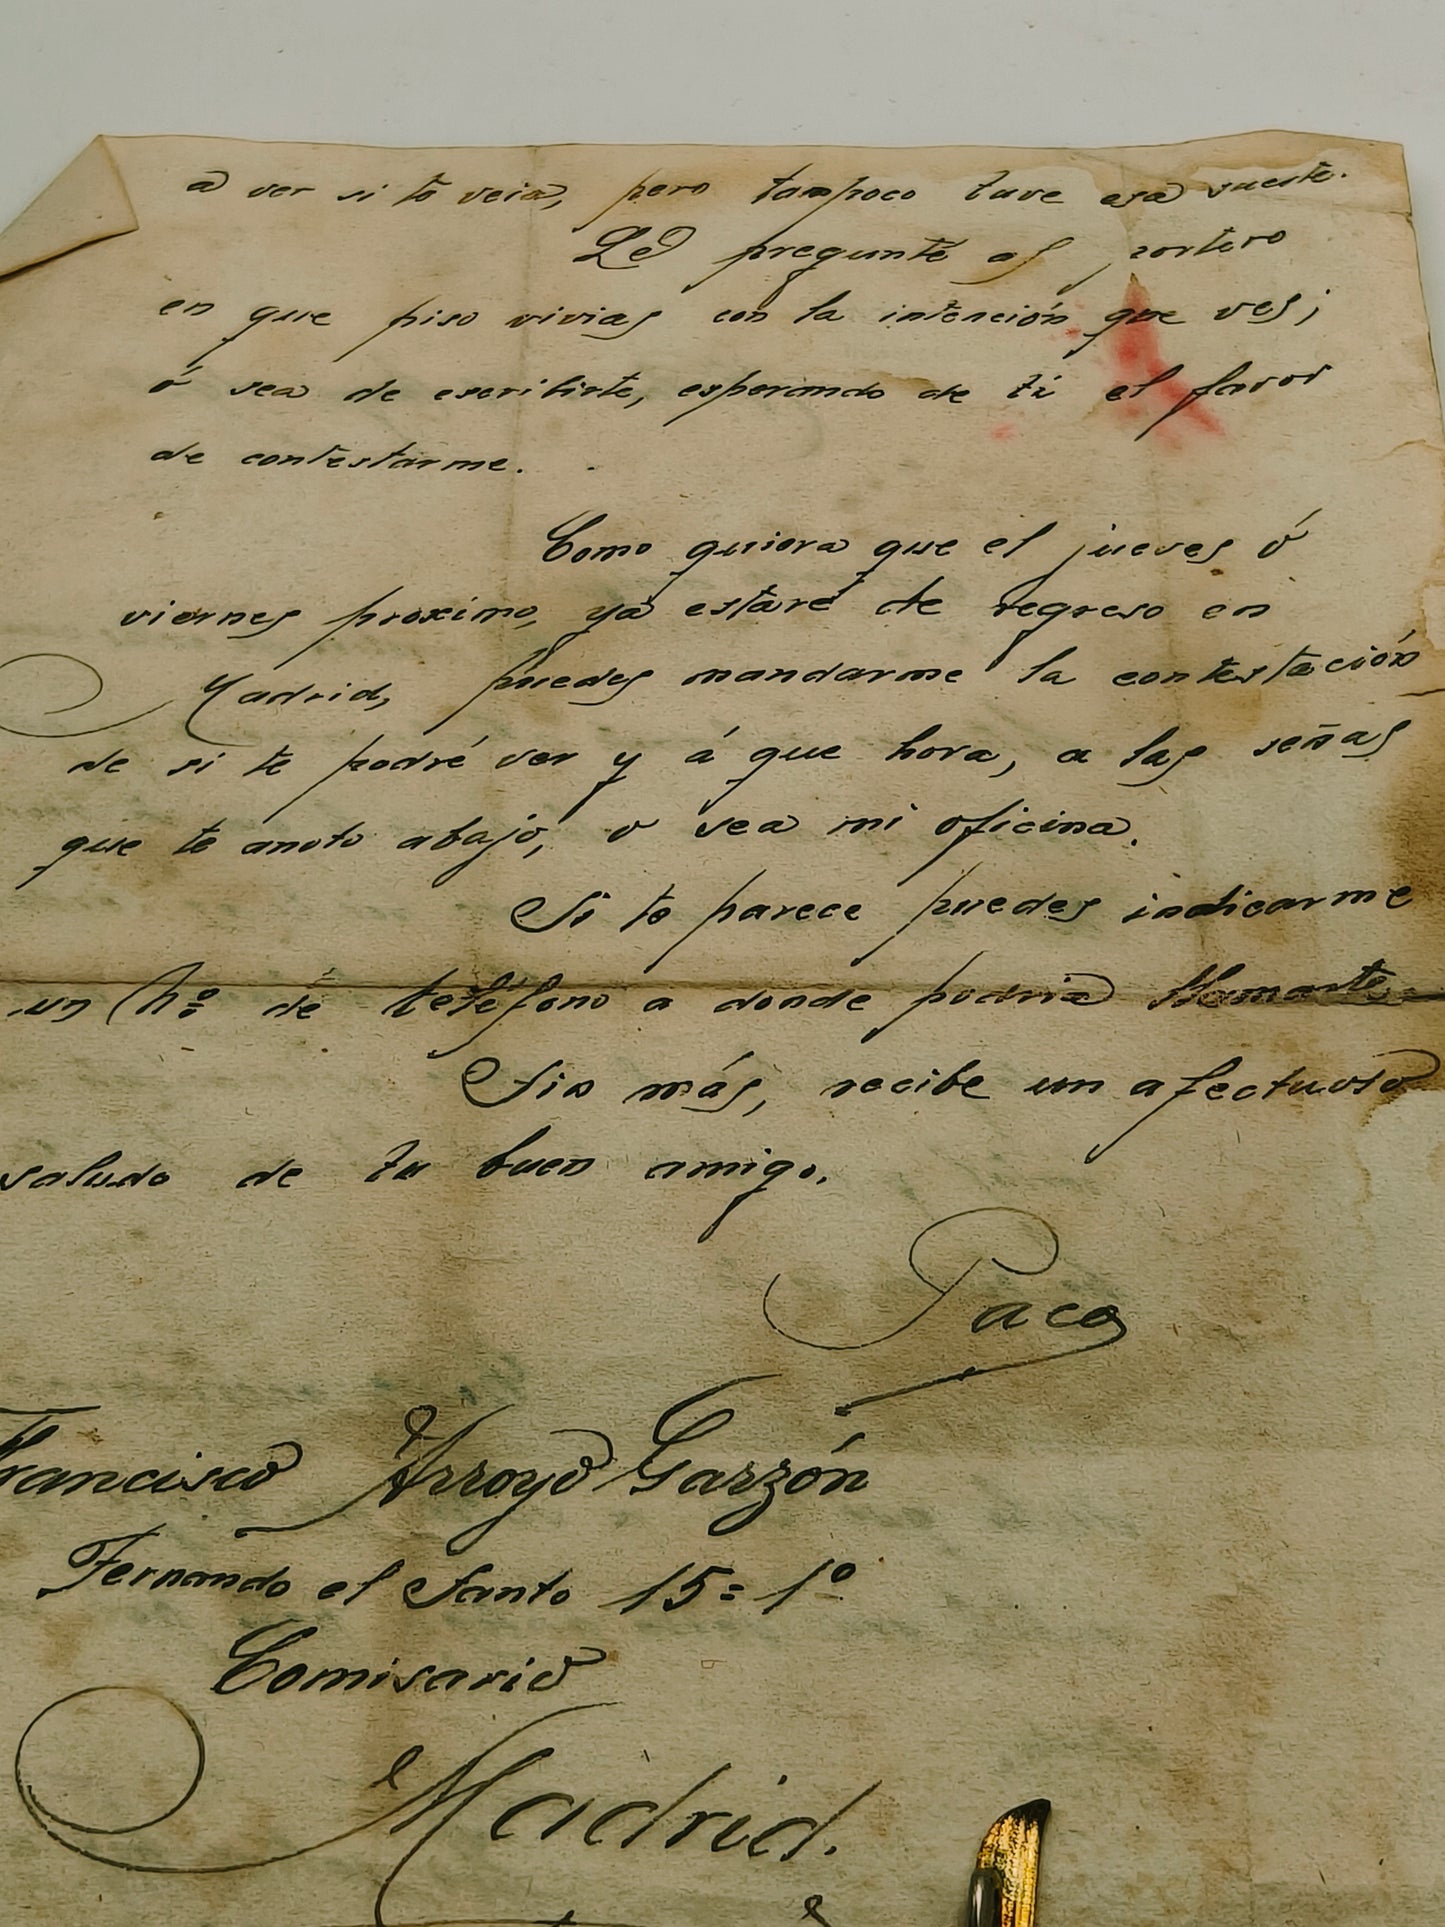 a ver si te veia, pero tampoco tuve esa suerte.
Le pregunté al portero
en que piso vivias con la intención que ves;
ó sea de escribirte, esperando de ti el favor
de contestarme.
Como quiera que el jueves ó
viernes proximo, ya estaré de regreso en
Madrid, puedes mandarme la contestación
de si te podré ver y á que hora, a las señas
que te anoto abajo, o sea mi oficina.
Si te parece puedes indicarme
un Nº de teléfono a donde podria llamarte.
Sin más, recibe un afectuoso
saludo de tu buen amigo,
Paco
Francisco Arroyo Garzón
Fernando el Santo 15=1º
Comisario
Madrid.